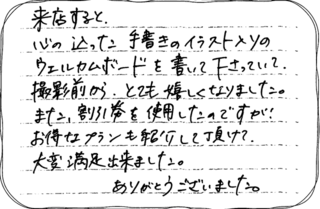 来店すると、
心の込った手書きのイラスト入りの
ウェルカムボードを書いて下さっていて、
撮影前から、とても嬉しくなりました。
また、割引券を使用したのですが、
お得なプランも紹介して頂けて、
大変満足出来ました。
ありがとうございました。